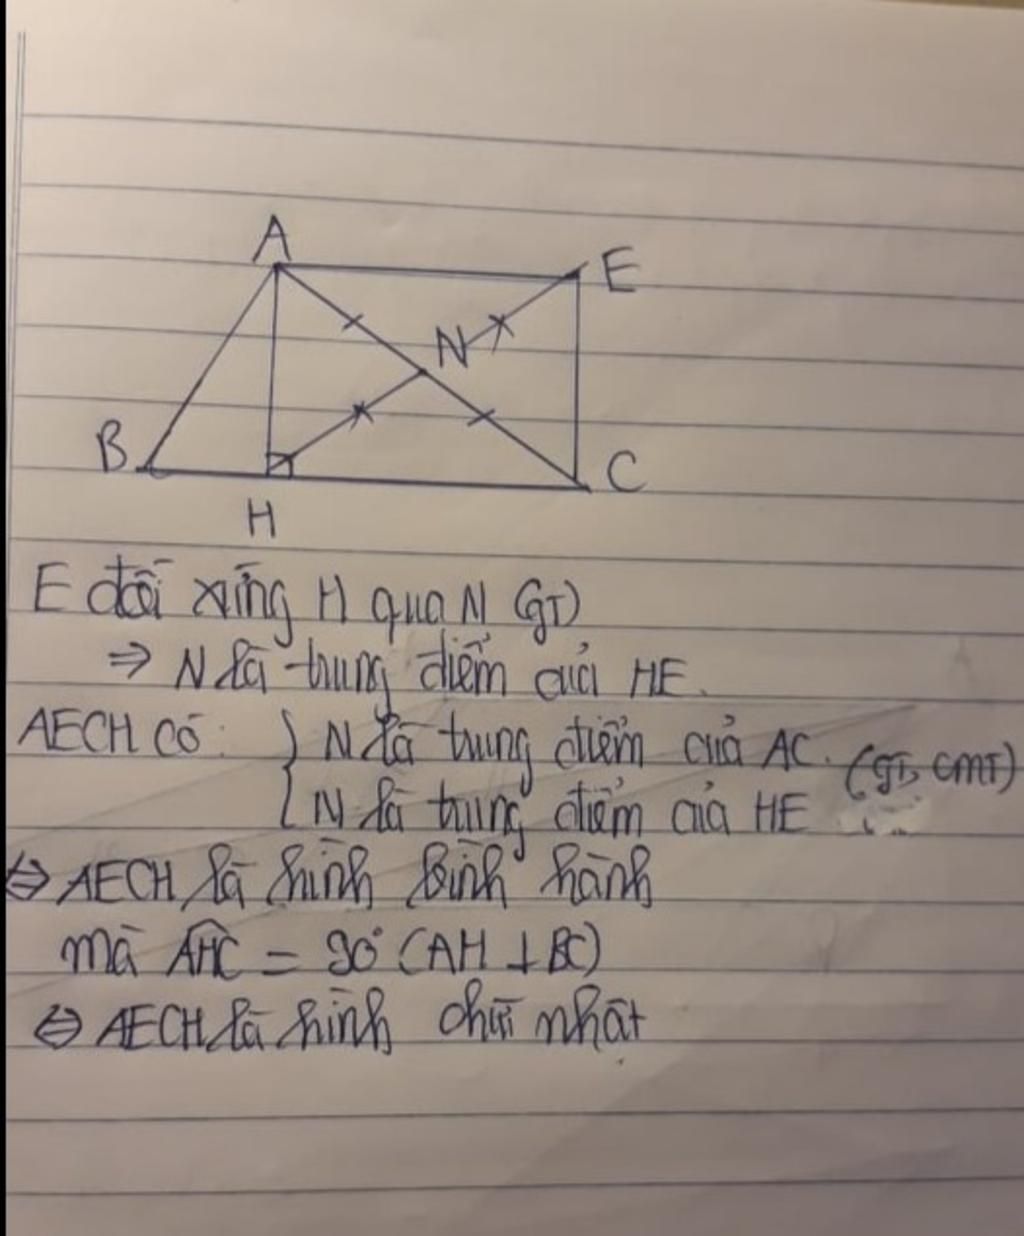 A
E
N
B
C
H
E đối xứng H qua N (GT)
⇒ N là trung điểm của HE.
AECH có: { N là trung điểm của AC. (GT, CMT)
N là trung điểm của HE
⇔ AECH là hình bình hành
mà AHC = 90° (AH ⊥ BC)
⇔ AECH là hình chữ nhật